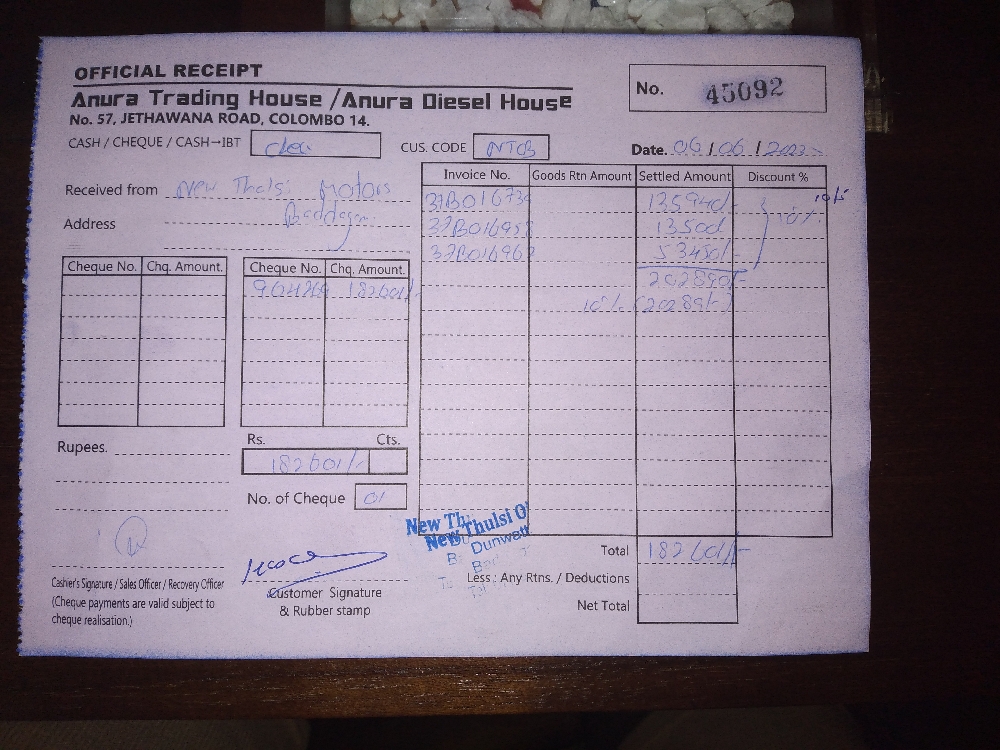 OFFICIAL RECEIPT
Anura Trading House / Anura Diesel House
No. 57, JETHAWANA ROAD, COLOMBO 14.
No. 45092
CASH / CHEQUE / CASH→IBT
CUS. CODE NTCB
Date. 06 / 06 /
Received from New Thalsi Motors
Address Baddagama
Invoice No. Goods Rtn Amount Settled Amount Discount %
135940/- 10%
13500/-
53450/-
202890/-
10% (20289/-)
Cheque No. Chq. Amount.
Cheque No. Chq. Amount.
182601/-
Rupees.
Rs. Cts.
182601/-
No. of Cheque 01
New Th
New Thulsi O
Dunwatt
Total 182601/-
Less : Any Rtns. / Deductions
Net Total
Cashier's Signature / Sales Officer / Recovery Officer
(Cheque payments are valid subject to
cheque realisation.)
Customer Signature
& Rubber stamp